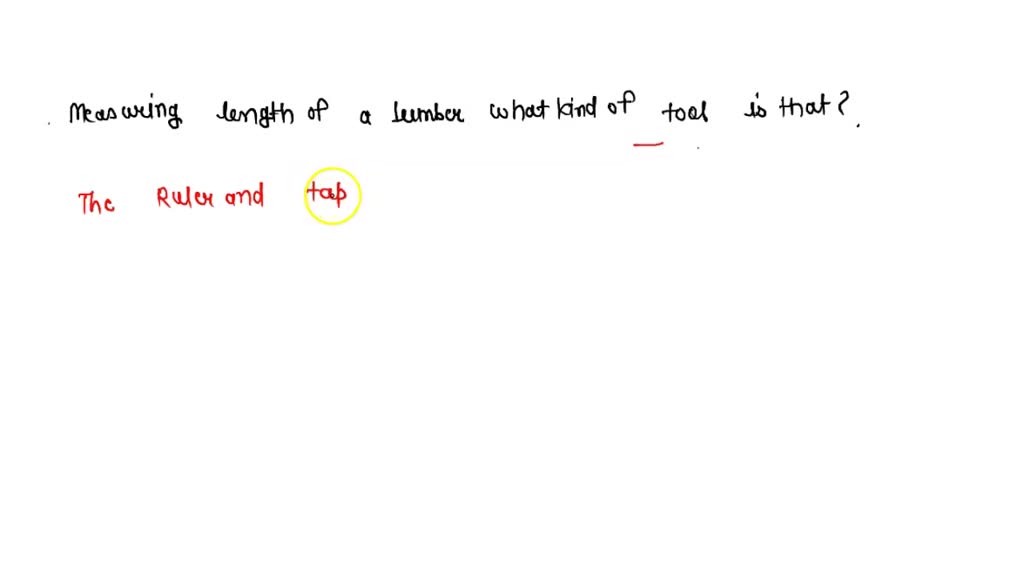 Measuring length of a lumber what kind of tool is that?
The Ruler and tap